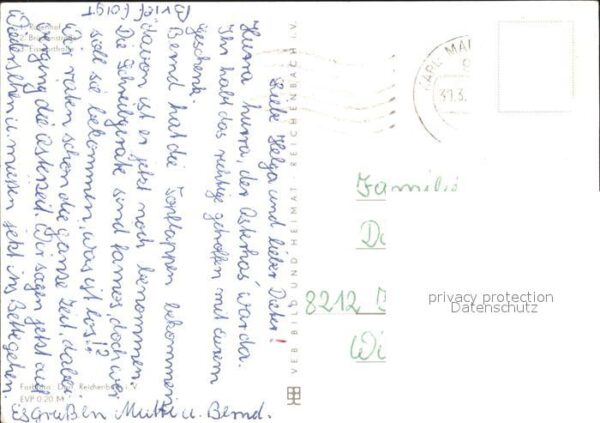 Brief folgt
Liebe Helga und lieber Dieter!
Hurra hurra, der Osterhas' war da.
Ihr habt das richtige getroffen mit eurem
Geschenk.
Bernd hat die Tonklappen bekommen
davon ist er jetzt noch benommen.
Die Schreibgeräte sind famos, doch wer
soll sie bekommen, was ist los!?
Wir raten schon die ganze Zeit, dabei
verging die Osterzeit. Wir sagen jetzt auf
Wiedersehen u. müssen jetzt ins Bette gehen.
Es grüßen Mutti u. Bernd.
EVP 0,20 M
VEB BILD UND HEIMAT REICHENBACH I. V.
31.3.
Familie
8212
Wi
privacy protection
Datenschutz